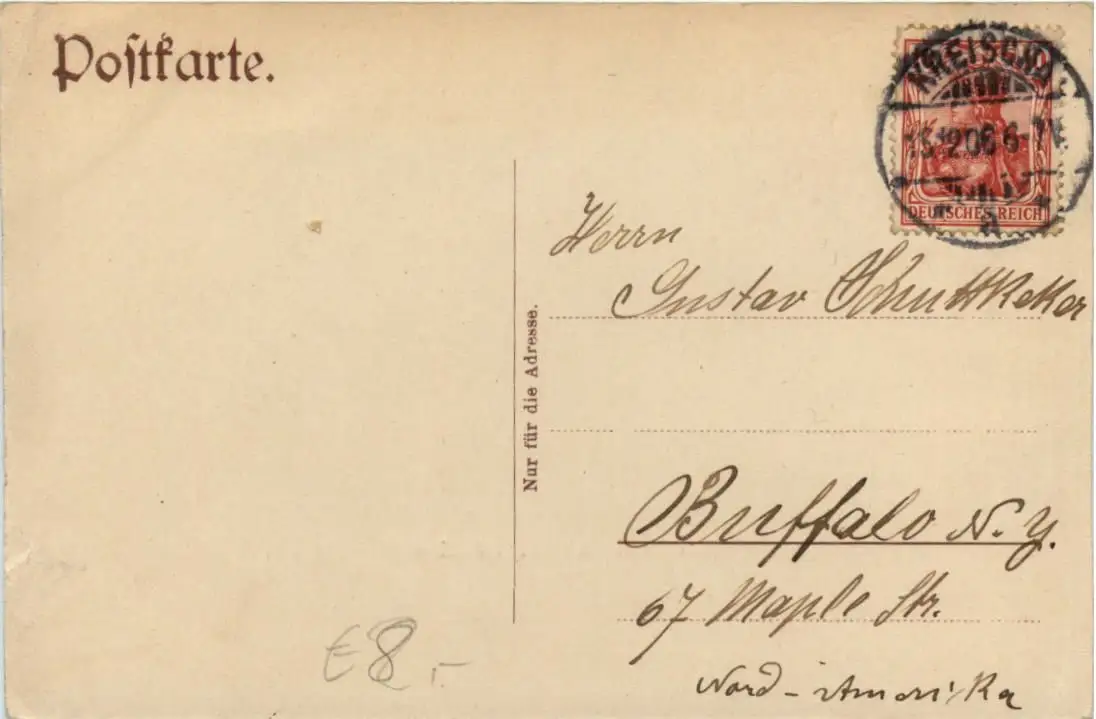 Postkarte.
KREISCHA
15.12.06 6-7 N.
a
DEUTSCHES REICH
Herrn
Gustav
Nur für die Adresse.
Buffalo N.Y.
67 Maple Str.
Nord-Amerika
€ 8,-